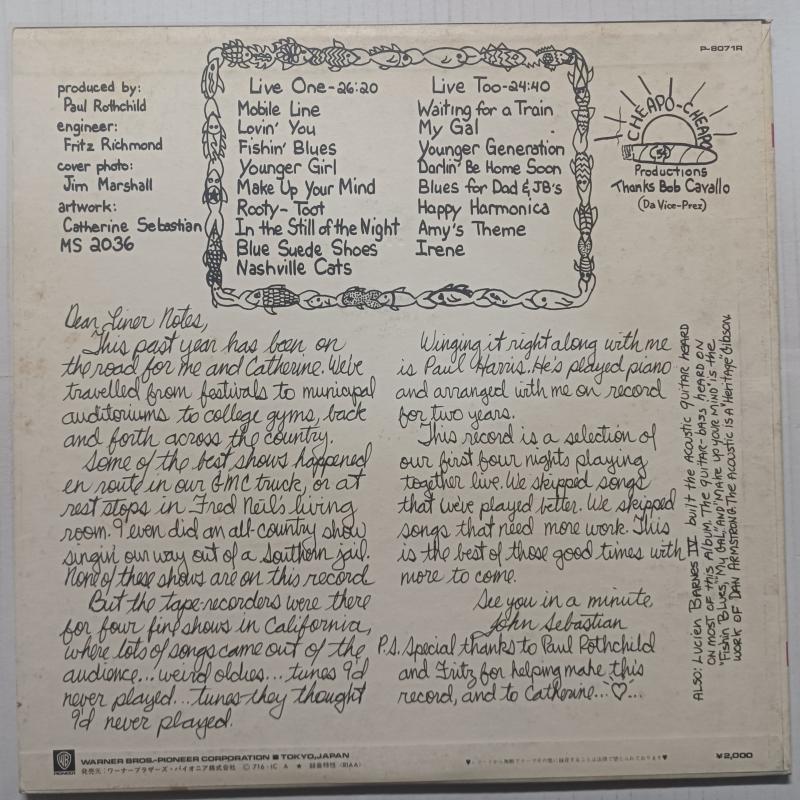 P-8071R
produced by:
Paul Rothchild
engineer:
Fritz Richmond
cover photo:
Jim Marshall
artwork:
Catherine Sebastian
MS 2036
Live One-26:20
Mobile Line
Lovin' You
Fishin' Blues
Younger Girl
Make Up Your Mind
Rooty-Toot
In the Still of the Night
Blue Suede Shoes
Nashville Cats
Live Too-24:40
Waiting for a Train
My Gal
Younger Generation
Darlin' Be Home Soon
Blues for Dad & JB's
Happy Harmonica
Amy's Theme
Irene
CHEAPO-CHEAPO
Productions
Thanks Bob Cavallo
(Da Vice-Prez)
Dear Liner Notes,
This past year has been on
the road for me and Catherine. We've
travelled from festivals to municipal
auditoriums to college gyms, back
and forth across the country.
Some of the best shows happened
en route in our GMC truck, or at
rest stops in Fred Neil's living
room. I even did an all-country show
singin' our way out of a Southern jail.
None of these shows are on this record
But the tape-recorders were there
for four fine shows in California,
where lots of songs came out of the
audience... weird oldies... tunes I'd
never played... tunes they thought
I'd never played.
Winging it right along with me
is Paul Harris. He's played piano
and arranged with me on record
for two years.
This record is a selection of
our first four nights playing
together live. We skipped songs
that we've played better. We skipped
songs that need more work. This
is the best of those good times with
more to come.
See you in a minute,
John Sebastian
P.S. Special thanks to Paul Rothchild
and Fritz for helping make this
record, and to Catherine...♡...
ALSO: LUCIEN BARNES IV built the ACOUSTIC guitar HEARD
ON MOST OF THIS ALBUM. THE GUITAR-BASS HEARD ON
"FISHIN' BLUES," "MY GAL" AND "MAKE UP YOUR MIND" IS THE
WORK OF DAN ARMSTRONG. THE ACOUSTIC IS A "HERITAGE" GIBSON.
WB
PIONEER
WARNER BROS.-PIONEER CORPORATION ■ TOKYO, JAPAN
発売元：ワーナーブラザーズ・パイオニア株式会社 © 716・IC A ★ 録音特性 (RIAA)
♥レコードから無断でテープその他に録音することは法律で禁じられております♥
¥2,000